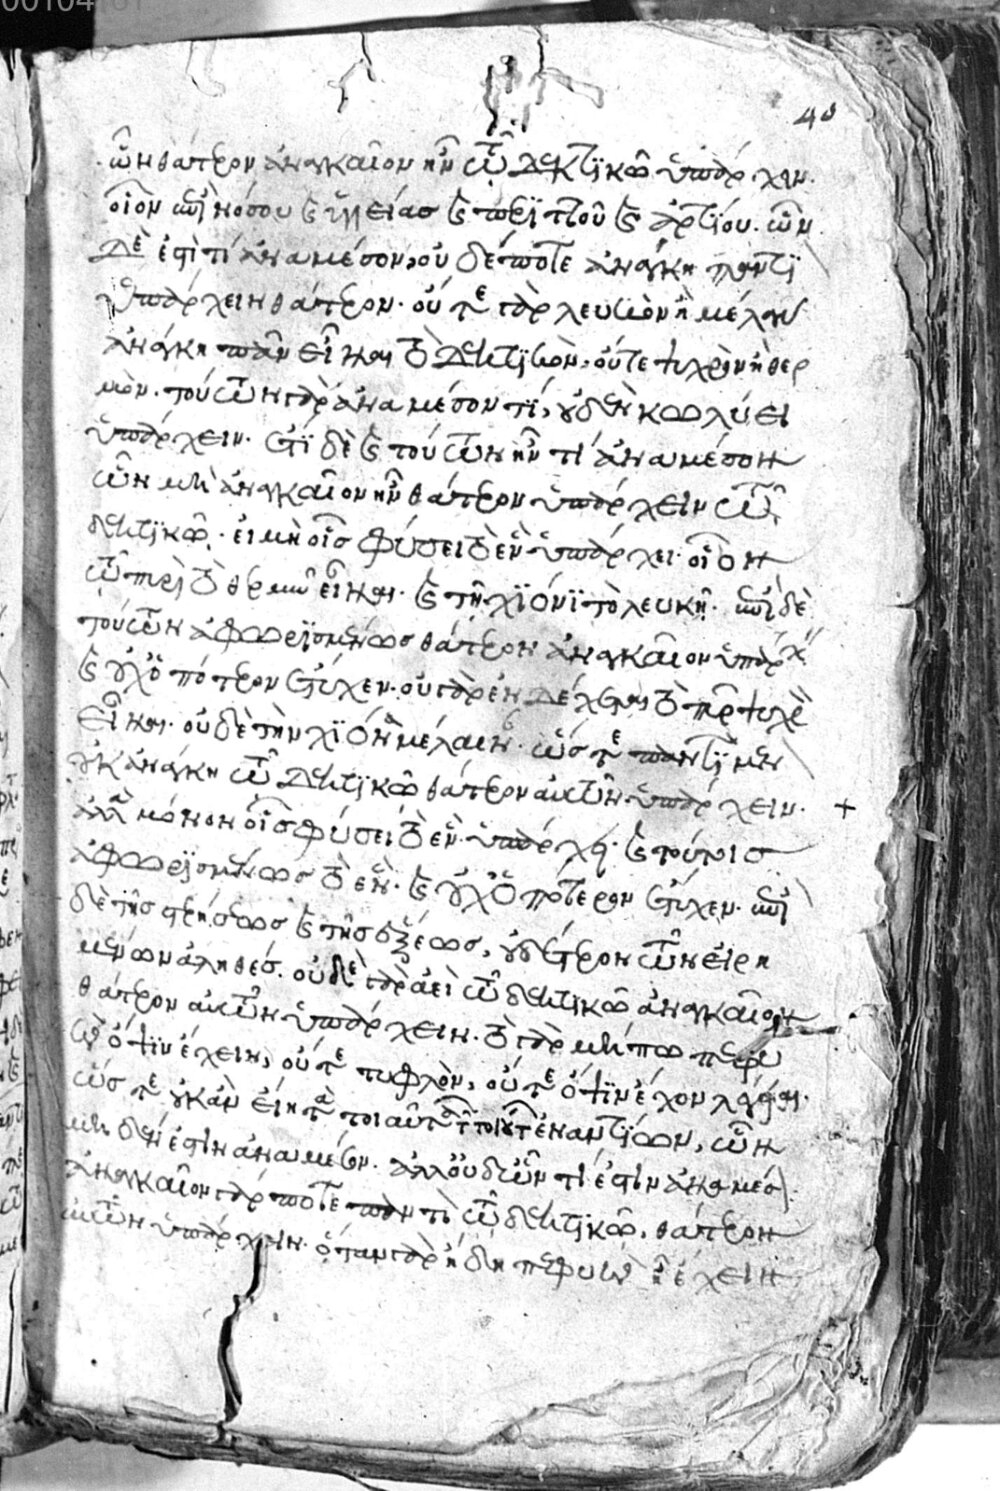 40
ὧν θάτερον ἀναγκαῖον ἦν τῷ δεκτικῷ ὑπάρχειν.
οἷον ἐπὶ νόσου καὶ ὑγιείας καὶ περιττοῦ καὶ ἀρτίου. ὧν
δὲ ἐστί τί ἀναμέσον, οὐδέποτε ἀνάγκη παντὶ
ὑπάρχειν θάτερον. οὔτε γὰρ λευκὸν ἢ μέλαν
ἀνάγκη πᾶν εἶναι τὸ δεκτικὸν, οὔτε ψυχρὸν ἢ θερ
μὸν. τούτων γὰρ ἀναμέσον τί, οὐδὲν κωλύει
ὑπάρχειν. ἔτι δὲ καὶ τούτων ἦν τί ἀναμέσον
ὧν μὴ ἀναγκαῖον ἦν θάτερον ὑπάρχειν τῷ
δεκτικῷ. εἰ μὴ οἷς φύσει τὸ ἓν ὑπάρχει. οἷον
τῷ πυρὶ τὸ θερμῷ εἶναι. καὶ τῇ χϊόνϊ τὸ λευκῇ. ἐπὶ δὲ
τούτων ἀφωρϊσμένως θάτερον ἀναγκαῖον ὑπάρχειν
καὶ οὐχ ὁπότερον ἔτυχεν. οὐ γὰρ ἐνδέχεται τὸ πῦρ ψυχρὸν
εἶναι. οὐδὲ τὴν χϊόνα μέλαιναν. ὥστε παντὶ μὲν
οὐκ ἀνάγκη τῷ δεκτικῷ θάτερον αὐτῶν ὑπάρχειν. +
ἀλλὰ μόνον οἷς φύσει τὸ ἓν ὑπάρχει. καὶ τούτοις
ἀφωρϊσμένως τὸ ἓν. καὶ οὐχ ὁπότερον ἔτυχεν. ἐπὶ
δὲ τῆς στερήσεως καὶ τῆς ἕξεως, οὐδέτερον τῶν εἰρη
μένων ἀληθές. οὐδὲ γὰρ ἀεὶ τῷ δεκτικῷ ἀναγκαῖον
θάτερον αὐτῶν ὑπάρχειν. τὸ γὰρ μήπω πεφυ
κὸς ὄψϊν ἔχειν, οὔτε τυφλὸν, οὔτε ὄψϊν ἔχον λέγεται.
ὥστε οὐκ ἂν εἴη ταῦτα τῶν τοιούτων ἐναντίων, ὧν
μηδέν ἐστιν ἀναμέσον. ἀλλ' οὐδὲ ὧν τί ἐστιν ἀναμέσον.
ἀναγκαῖον γάρ ποτε παντὶ τῷ δεκτικῷ, θάτερον
αὐτῶν ὑπάρχειν. ὅταν γὰρ ἤδη πεφυκὸς ᾖ ἔχειν